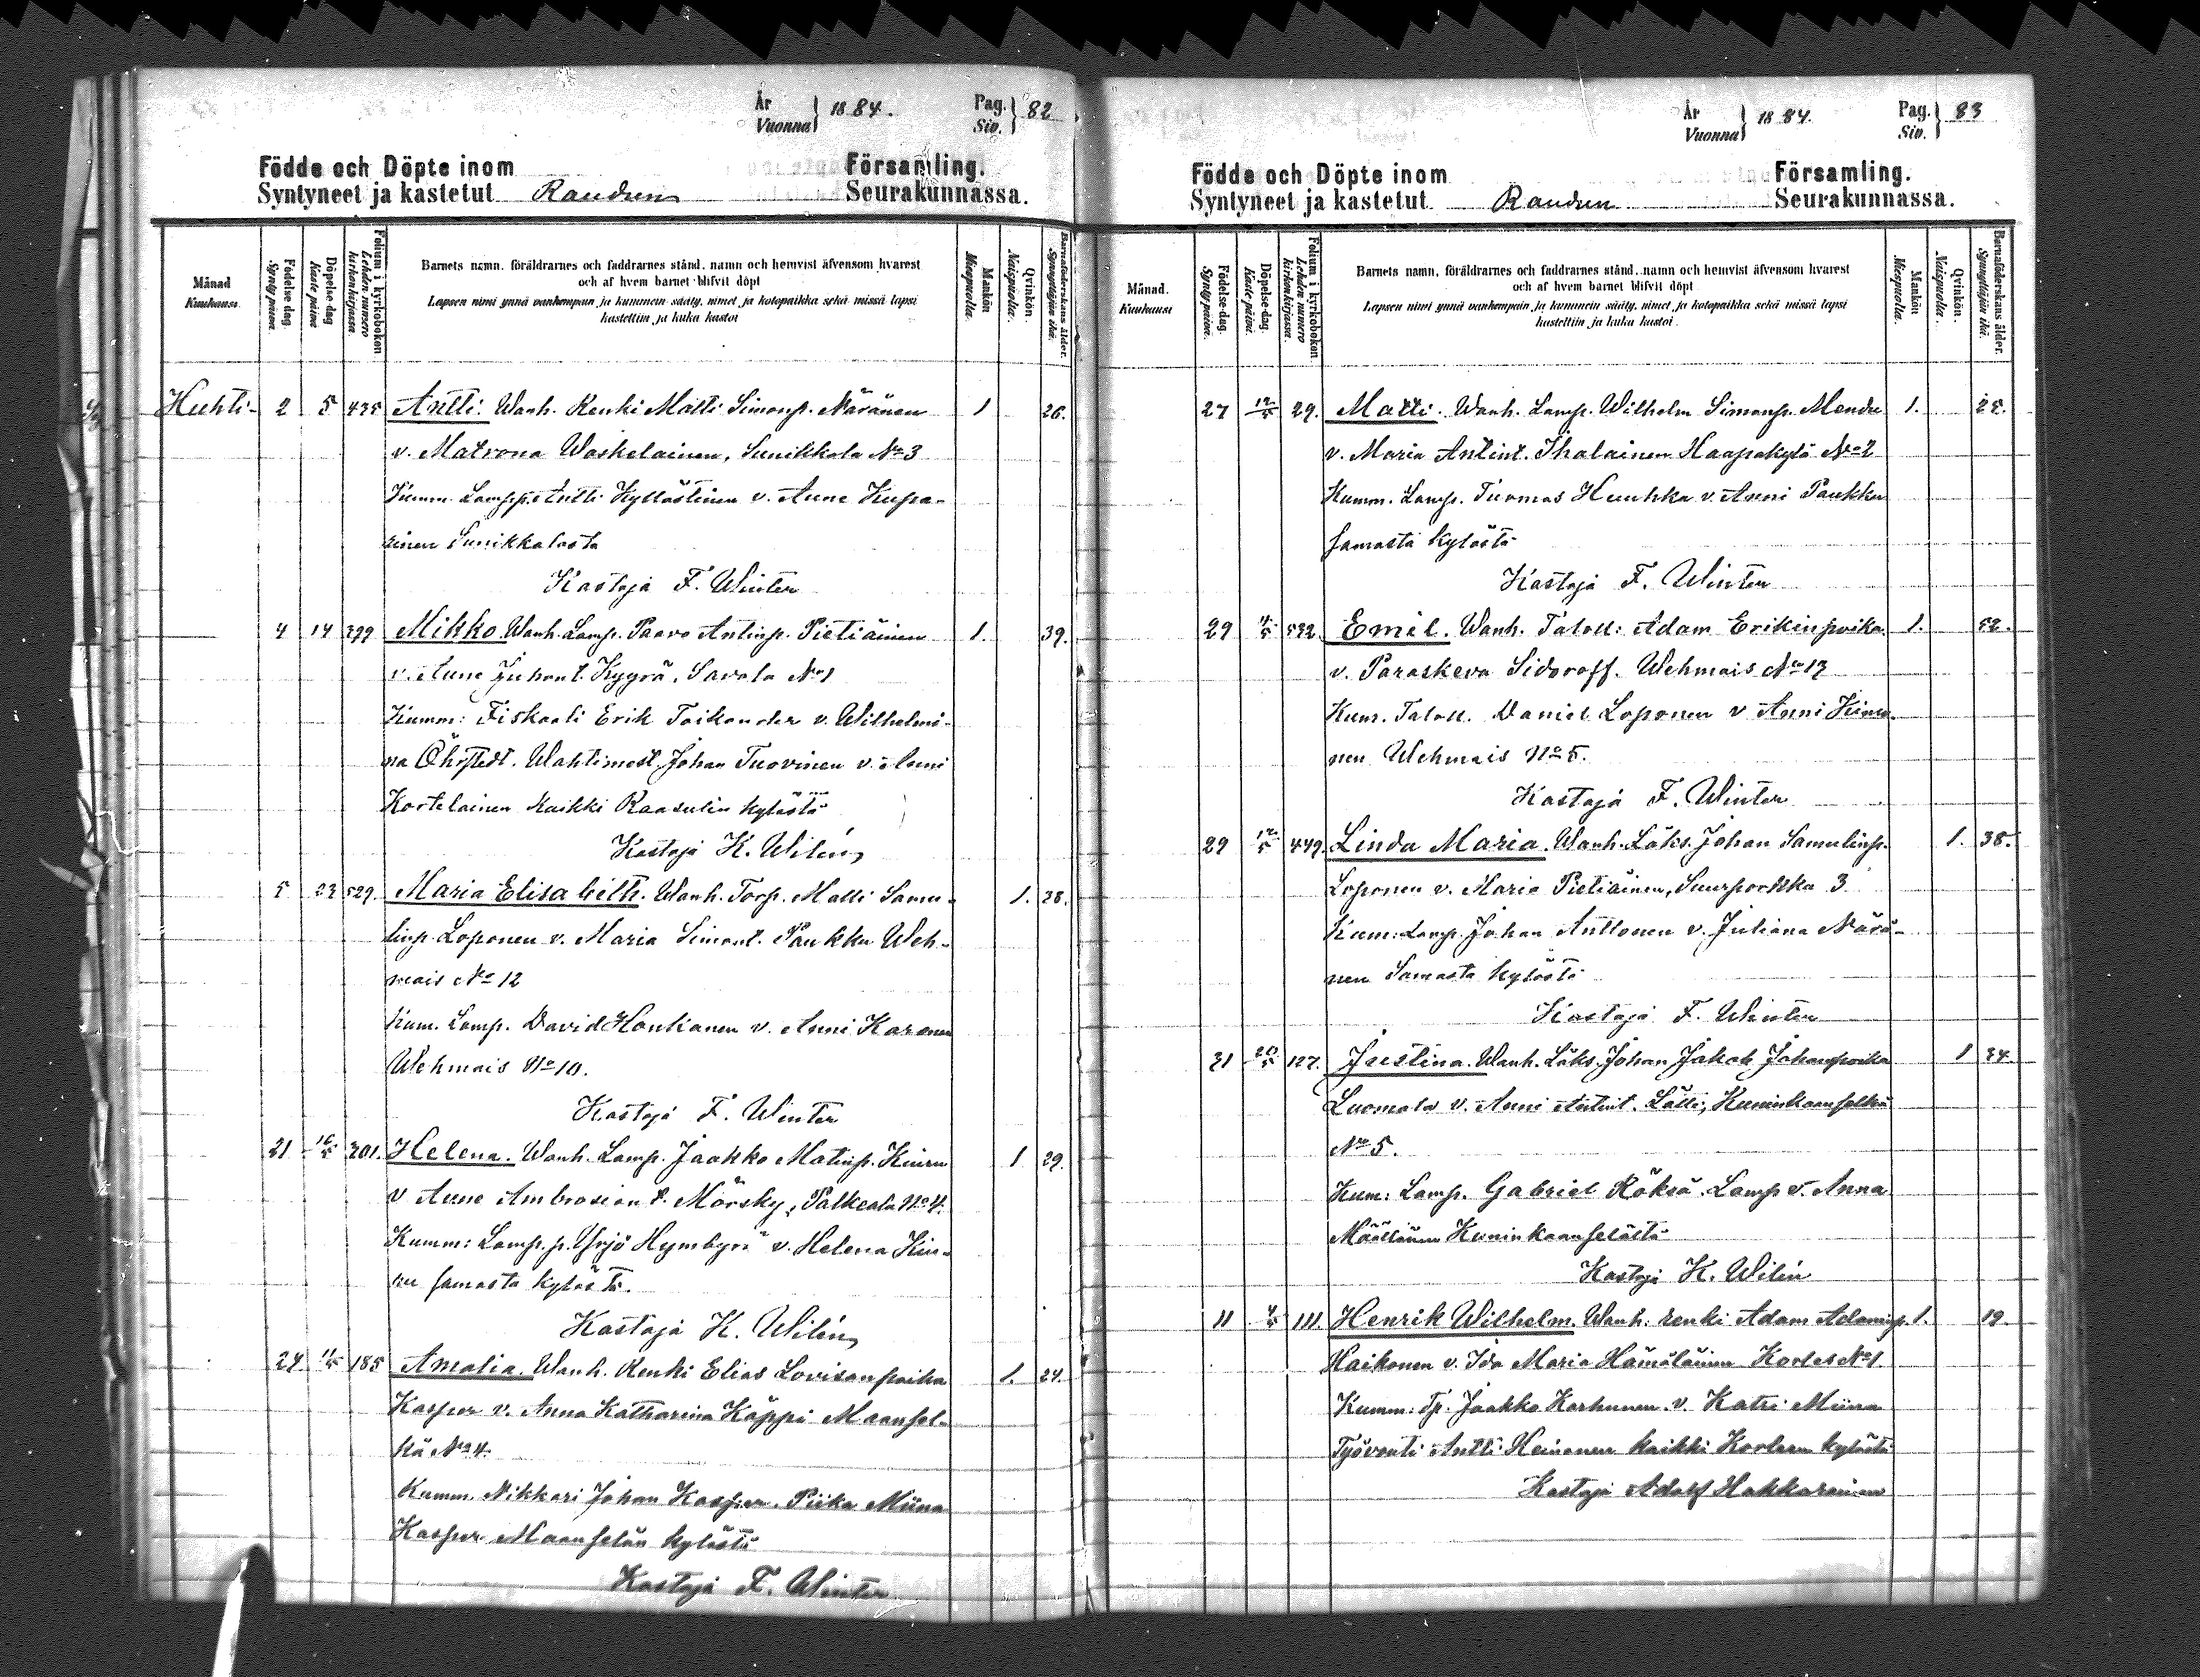 År
Vuonna } 1884.
Pag.
Siv. } 82
Födde och Döpte inom Församling.
Syntyneet ja kastetut Raudun Seurakunnassa.
Månad
Kuukausi
Födelse dag
Synty päivä.
Döpelse dag
Kaste päivä
Folium i kyrkoboken
Lehden numero kirkonkirjassa
Barnets namn, föräldrarnes och faddrarnes stånd, namn och hemvist äfvensom hvarest
och af hvem barnet blifvit döpt
Lapsen nimi ynnä vanhempain ja kummein sääty, nimet ja kotopaikka sekä missä lapsi
kastettiin ja kuka kastoi
Mankön
Miespuolia.
Qvinkön.
Naispuolia.
Barnaföderskans ålder.
Synnyttäjän ikä.
Huhti- 2 5 435 Antti. Wanh. Renki Matti Simonp. Näränen 1 26.
v. Matrona Waskelainen, Sunikkala No 3
Kumm. Lampp. Antti Kyllästinen v. Anne Kupa-
rinen Sunikkalasta
Kastaja F. Winter
4 14 399 Mikko. Wanh. Lamp. Paavo Antinp. Pietiäinen 1. 39.
v. Anne Juhont. Kygrä, Savala No 1
Kumm: Fiskaali Erik Toikander v. Wilhelmi-
na Öhrstedt. Wahtimest. Johan Tuovinen v. Anni
Kortelainen Kaikki Raasulin kylästä
Kastaja K. Wilén
5 23 529. Maria Elisabeth. Wanh. Torp. Matti Samu- 1. 28.
linp. Loponen v. Maria Simont. Paukku Weh-
mais No 12
Kum. Lamp. David Honkanen v. Anni Karonen
Wehmais No 10.
Kastaja F. Winter
21 16/5 301. Helena. Wanh. Lamp. Jaakko Matinp. Kiuru 1 29.
v Anne Ambrosion t. Mörsky, Palkeala No 4.
Kumm: Lamp. p. Yrjö Hymbyrä v. Helena Kiu-
ru samasta kylästä.
Kastaja K. Wilén
24. 11/5 185 Amalia. Wanh. Renki Elias Lovisanpoika 1. 24.
Kasper v. Anna Katharina Käppi Maansel-
kä No 4.
Kumm. Nikkari Johan Kasper. Piika Miina
Kasper Maanselän kylästä
Kastaja F. Winter
År
Vuonna } 1884.
Pag.
Siv. } 83
Födde och Döpte inom Församling.
Syntyneet ja kastetut Raudun Seurakunnassa.
Månad.
Kuukausi
Födelse-dag.
Synty päivä.
Döpelse-dag.
Kaste päivä.
Folium i kyrkoboken.
Lehden numero kirkonkirjassa.
Barnets namn, föräldrarnes och faddrarnes stånd, namn och hemvist äfvensom hvarest
och af hvem barnet blifvit döpt
Lapsen nimi ynnä vanhempain ja kummein sääty, nimet ja kotopaikka sekä missä lapsi
kastettiin ja kuka kastoi.
Mankön
Miespuolia.
Qvinkön.
Naispuolia.
Barnaföderskans ålder.
Synnyttäjän ikä.
27 12/5 29. Matti. Wanh. Lamp. Wilhelm Simonp. Mendu 1. 25.
v. Maria Antint. Ihalainen Haapakylä No 2
Kumm. Lamp. Tuomas Huuhka v. Anni Paukku
samasta kylästä
Kastaja F. Winter
29 532. Emil. Wanh. Taloll: Adam Erikinpoika 1. 52.
v. Paraskeva Sidoroff. Wehmais No 13
Kum. Taloll. Daniel Loponen v Anni Kimo-
nen Wehmais No 5.
Kastaja F. Winter
29 12/5 449. Linda Maria. Wanh. Läks. Johan Samulinp. 1. 38.
Loponen v. Maria Pietiäinen, Suurporkka 3
Kum: Lamp. Johan Anttonen v. Juliana Närä-
nen Samasta kylästä
Kastaja F. Winter
21 20/5 127. Justina. Wanh. Läks. Johan Jakob Johanpoika 1 34.
Luomala v. Anni Antint. Lätti, Kuninkaanselkä
No 5.
Kum: Lamp. Gabriel Röksä Lamp v. Anna
Määttänen Kuninkaanselältä
Kastaja K. Wilén
11 4/5 111. Henrik Wilhelm. Wanh. renki Adam Adaminp. 1. 19.
Haikonen v. Ida Maria Hämäläinen Kortes No 1.
Kumm: Tp. Jaakko Karhunen v. Katri Miina
Työvouti Antti Heinonen kaikki Kortesen kylästä
Kastaja Adolf Hakkarainen